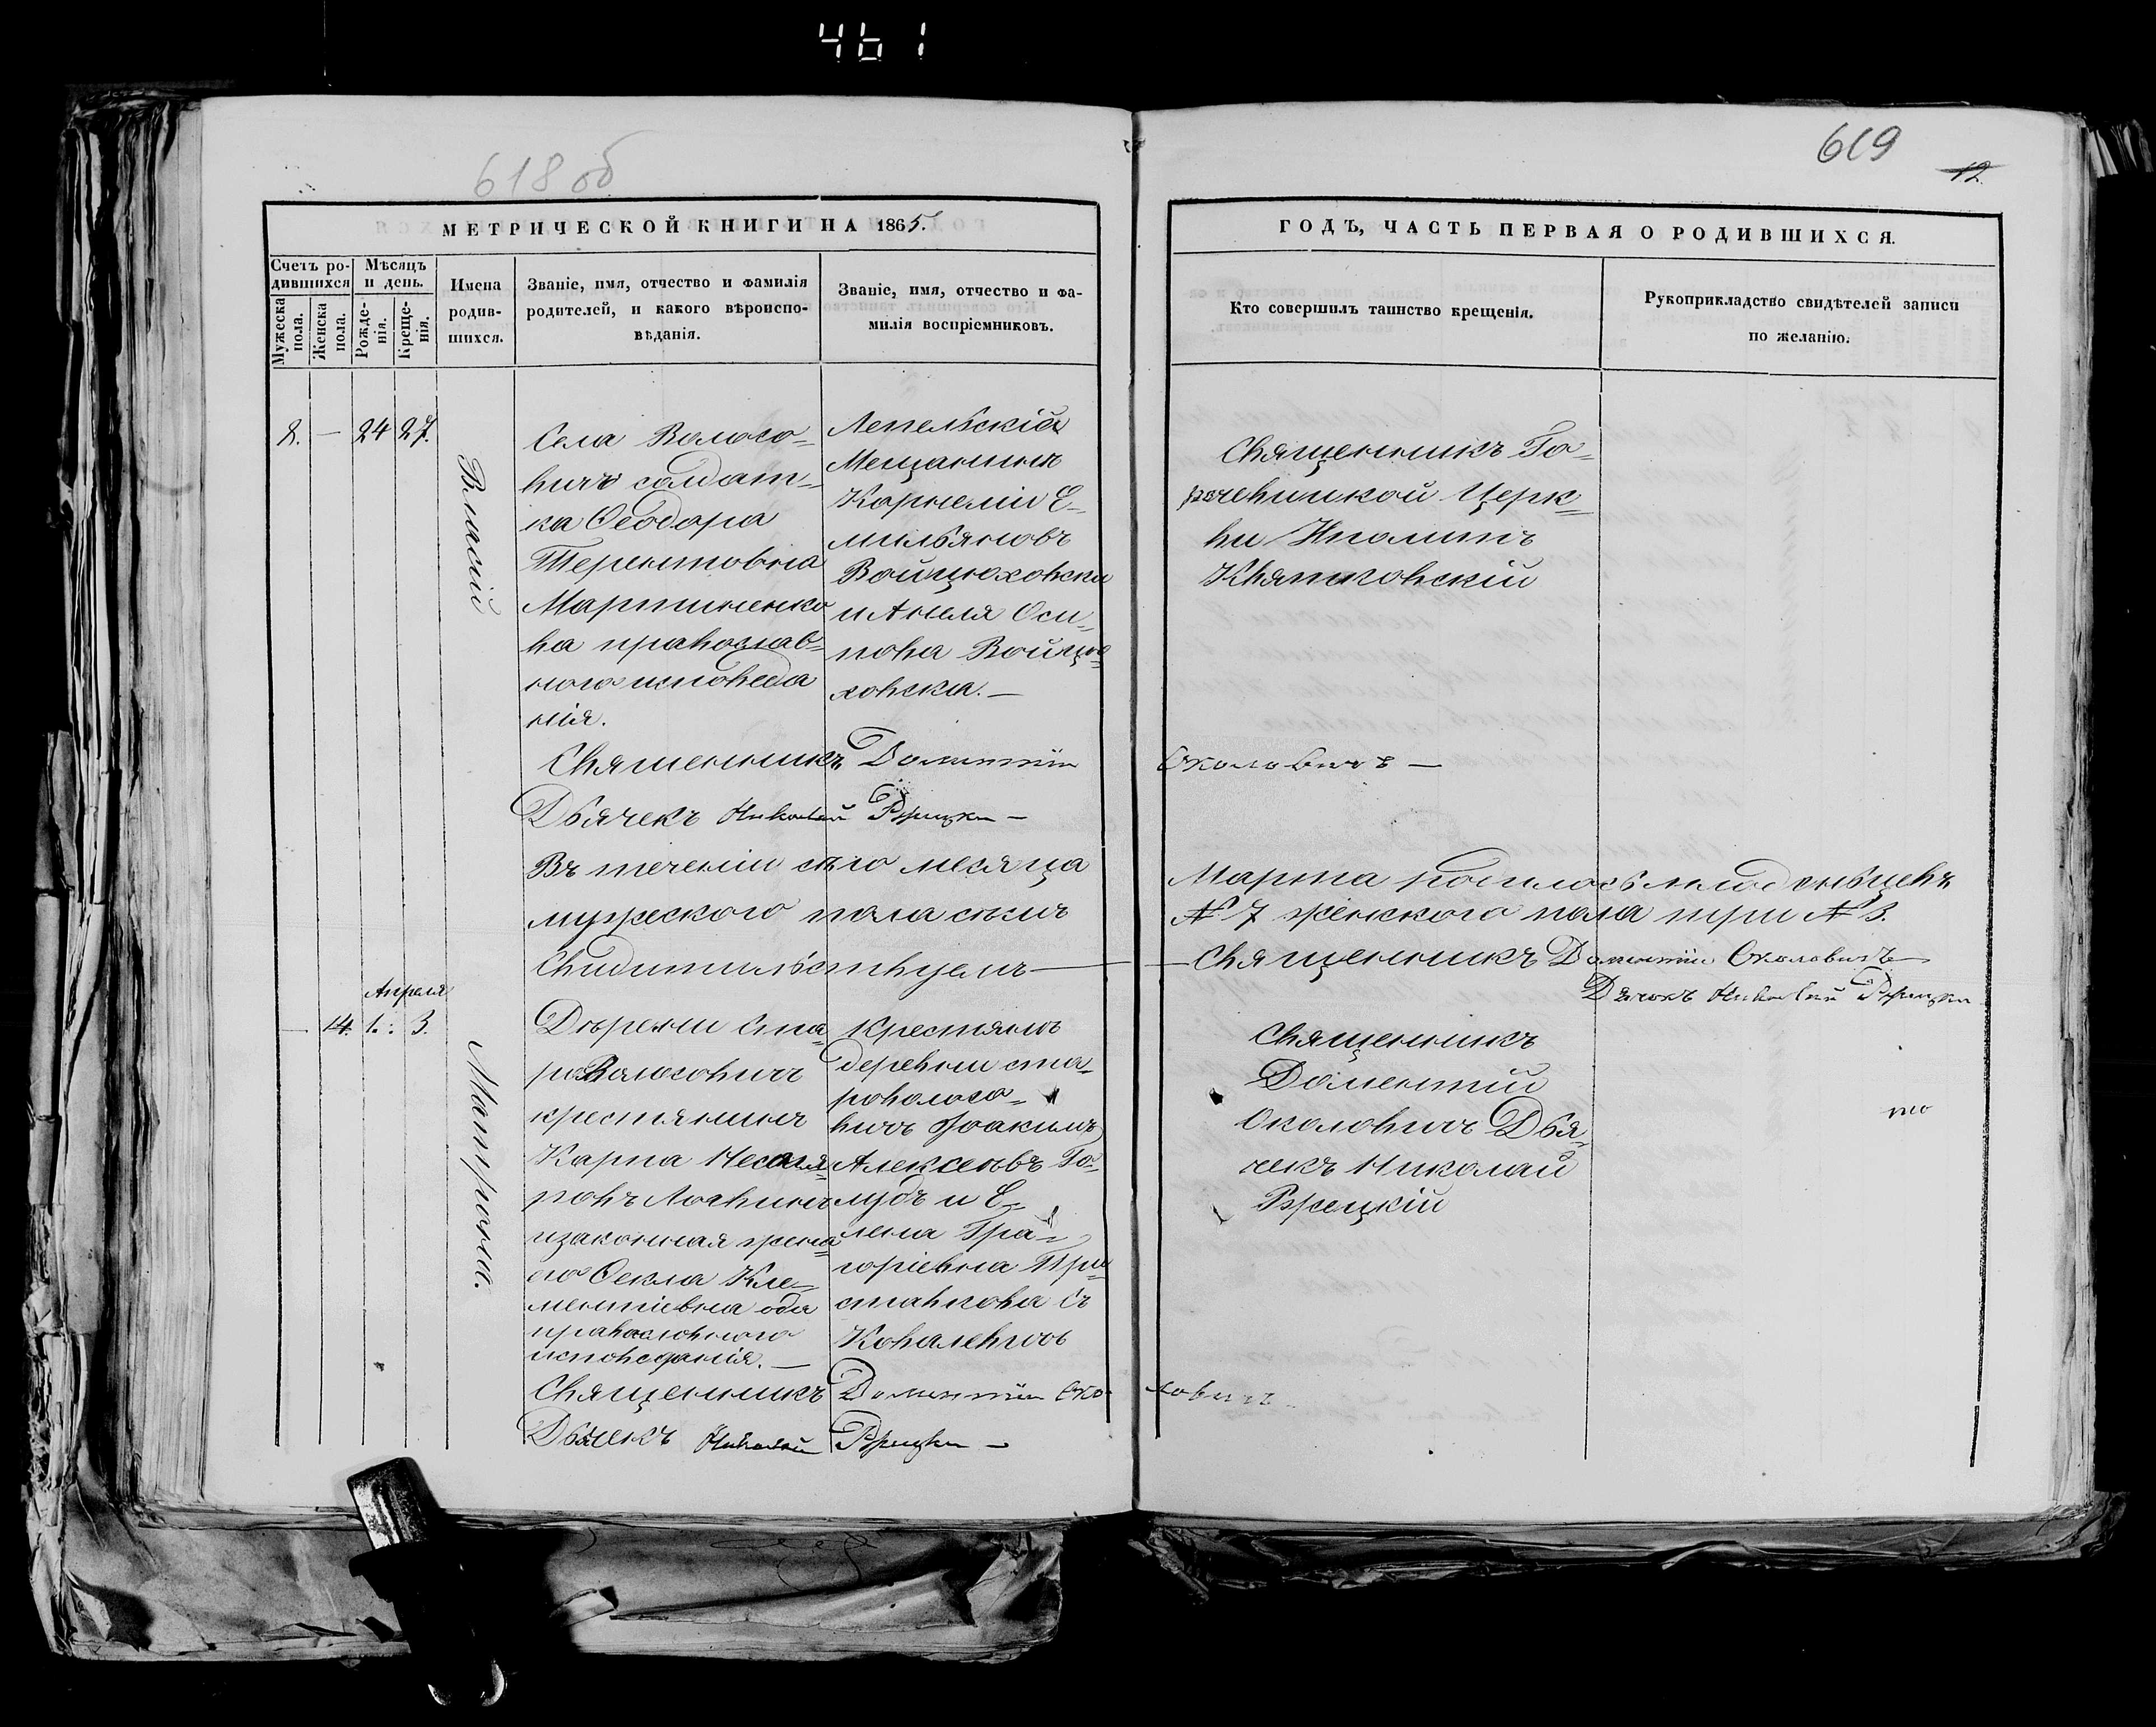 461
618 об
619
12
МЕТРИЧЕСКОЙ КНИГИ НА 1865.
ГОДЪ, ЧАСТЬ ПЕРВАЯ О РОДИВШИХСЯ.
Счетъ ро-
дившихся
Мужеска
пола.
Женска
пола.
Мѣсяцъ
и день.
Рожде-
нія.
Креще-
нія.
Имена
родив-
шихся.
Званіе, имя, отчество и фамилія
родителей, и какого вѣроиспо-
вѣданія.
Званіе, имя, отчество и фа-
милія воспріемниковъ.
Кто совершилъ таинство крещенія.
Рукоприкладство свидѣтелей записи
по желанію.
8. — 24 27.
Власій
Села Волосо-
вичъ солдат-
ка Ѳеодора
Терентовна
Мартиненко
ва православ-
ного исповеда
нія.
Лепельскій
Мещанинъ
Корнелій Е-
мильяновъ
Войцюховски
и Анеля Оси-
пова Войцю-
ховска.—
Священникъ
Церк-
ви Иполитъ
Квятковскій
Священникъ Доментій Околовичъ —
Дьячекъ Николай Ржецки —
Въ теченіи сего месяца Марта родилось младенцевъ
мужеского пола семь № 7 женского пола три № 3.
Свидительствуемъ — Священникъ Доментій Околовичъ
Дячокъ Николай Ржецки
Апреля
— 14. 1. 3.
Матрона.
Деревни Ста-
роволосовичъ
крестянинъ
Карпа
и законная жена
его Ѳекла Кле-
ментіевна оба
православного
исповеданія.—
Крестянъ
деревни ста-
роволосо-
вичъ Іоакимъ
Алексеевъ Го-
лубъ и Е-
лена Гри-
горіевна
Священникъ
Доментій
Околовичъ Дья-
чекъ Николай
Ржецкій
Священникъ Доментій Околовичъ
Дьячекъ Николай Ржецки —